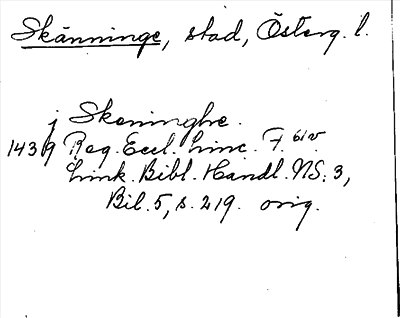 Skänninge, stad, Österg. l.
j Skeninghe.
1439 Reg. Eccl. Linc. F. 61v
Link. Bibl. Handl. NS. 3,
Bil. 5, s. 219. orig.